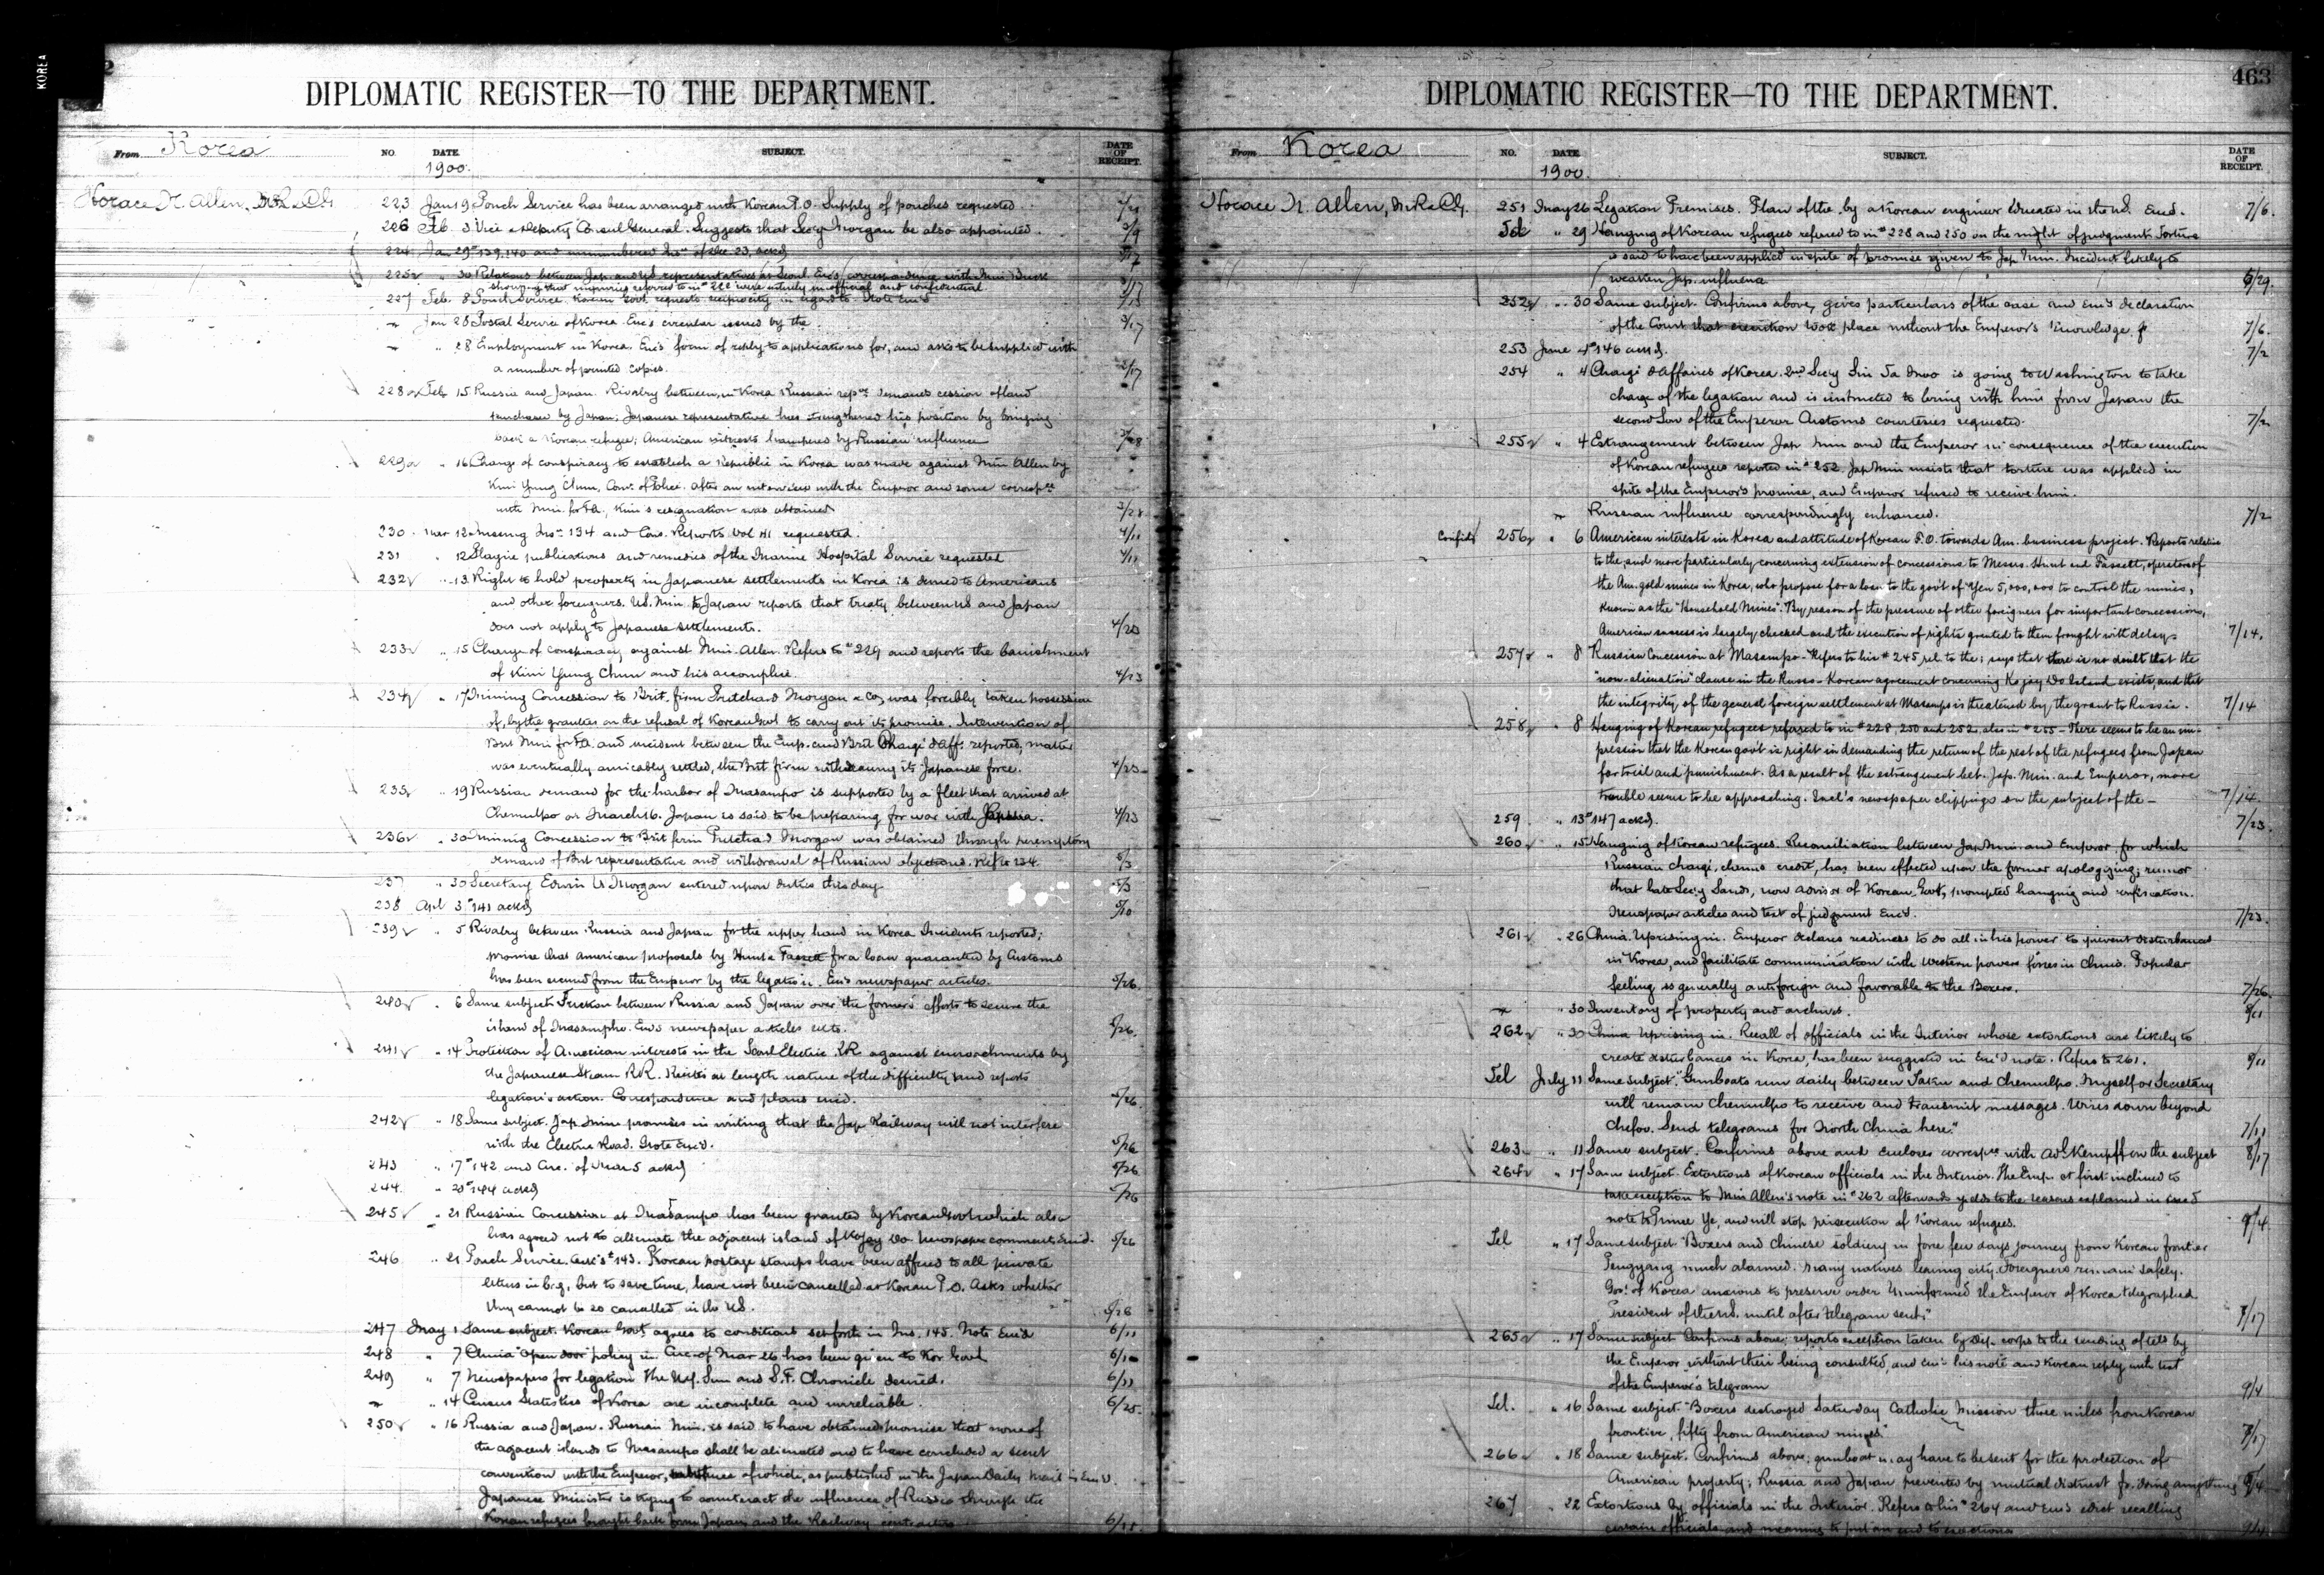 KOREA
DIPLOMATIC REGISTER—TO THE DEPARTMENT.
From Korea
NO. DATE. SUBJECT. DATE OF RECEIPT.
1900.
Horace N. Allen, M.R. & C.G.
223 Jan 19 Pouch Service has been arranged with Korean P.O. Supply of pouches requested.
226 Feb. 3 Vice & Deputy Consul General. Suggests that Secy Morgan be also appointed. 3/9
224 Jan 29 #s 139, 140 and unnumbered Ins. of Dec. 23, ackd
225 " 30 Relations between Jap. and U.S. representatives at Seoul. Enc's correspondence with Min Buck
showing that inquiries referred to in # 222 were entirely unofficial and confidential.
227 Feb. 8 Pouch Service. Korean Govt. requests reciprocity in regard to. Note Enc'd
Jan 28 Postal Service of Korea. Enc's circular issued by the. 3/17
" 28 Employment in Korea. Enc's form of reply to applications for, and asks to be supplied with
a number of printed copies.
228 Feb 15 Russia and Japan. Rivalry between, in Korea. Russian repve demands cession of land
purchased by Japan; Japanese representative has strengthened his position by bringing
back a Korean refugee; American interests hampered by Russian influence
229 " 16 Charge of conspiracy to establish a Republic in Korea was made against Min Allen by
Kim Yung Chun, Com. of Police. After an interview with the Emperor and some correspce
with Min. for F.A., Kim's resignation was obtained 3/28
230 Mar 12 Missing Ins. 134 and Con. Reports Vol 41 requested. 4/11
231 " 12 Plague publications and remedies of the Marine Hospital Service requested 4/11
232 " 13 Right to hold property in Japanese settlements in Korea is denied to Americans
and other foreigners. U.S. Min. to Japan reports that treaty between US and Japan
does not apply to Japanese settlements. 4/23
233 " 15 Charge of conspiracy against Min. Allen. Refers to # 229 and reports the banishment
of Kim Yung Chun and his accomplice. 4/23
234 " 17 Mining Concession to Brit. firm Pritchard Morgan & Co, was forcibly taken possession
of, by the grantees on the refusal of Korean Govt to carry out its promise. Intervention of
Brit Min for F.A. and incident between the Emp. and Brit Chargé d'Aff. reported; matter
was eventually amicably settled, the Brit firm withdrawing its Japanese force. 4/23
235 " 19 Russian demand for the harbor of Masampo is supported by a fleet that arrived at
Chemulpo on March 16. Japan is said to be preparing for war with Russia. 4/23
236 " 30 Mining Concession to Brit firm Pritchard Morgan was obtained through peremptory
demand of Brit representative and withdrawal of Russian objections. Ref to 234. 5/3
237 " 30 Secretary Edwin V. Morgan entered upon duties this day 5/3
238 Apl 3 # 141 ackd 5/10
239 " 5 Rivalry between Russia and Japan for the upper hand in Korea. Incidents reported;
promise that American proposals by Hunt & Fassett for a loan guaranteed by Customs
has been secured from the Emperor by the legation. Enc's newspaper articles. 5/26
240 " 6 Same subject. Friction between Russia and Japan over the former's efforts to secure the
island of Masampho. Enc's newspaper articles etc. 5/26
241 " 14 Protection of American interests in the Seoul Electric RR. against encroachments by
the Japanese Steam R.R. Recites at length nature of the difficulty and reports
legation's action. Correspondence and plans encd. 5/26
242 " 18 Same subject. Jap Min promises in writing that the Jap Railway will not interfere
with the Electric Road. Note Enc'd. 5/26
243 " 17 # 142 and Circ. of Mar 5 ackd 5/26
244. " 20 # 144 ackd 5/26
245 " 21 Russian Concession at Masampo has been granted by Korean Govt which also
has agreed not to alienate the adjacent island of Kojay Do. Newspaper comments Enc'd. 5/26
246 " 21 Pouch Service. Ack's # 143. Korean postage stamps have been affixed to all private
letters in bag, but to save time, have not been cancelled at Korean P.O. Asks whether
they cannot be so cancelled in the U.S. 5/26
247 May 1 Same subject. Korean Govt. agrees to conditions set forth in Ins. 145. Note Enc'd 6/11
248 " 7 China "Open door" policy in. Circ of Mar 26 has been given to Kor Govt 6/11
249 " 7 Newspapers for legation. The N.Y. Sun and S.F. Chronicle desired. 6/11
" 14 Census Statistics of Korea are incomplete and unreliable. 6/25.
250 " 16 Russia and Japan. Russian Min. is said to have obtained promise that none of
the adjacent islands to Masampo shall be alienated and to have concluded a secret
convention with the Emperor, substance of which, as published in the Japan Daily Mail is Enc'd.
Japanese Minister is trying to counteract the influence of Russia through the
Korean refugees brought back from Japan and the Railway contractors
DIPLOMATIC REGISTER—TO THE DEPARTMENT.
463
From Korea
NO. DATE. SUBJECT. DATE OF RECEIPT.
1900.
Horace N. Allen, M.R. & C.G.
251 May 26 Legation Premises. Plan of the, by a Korean engineer educated in the U.S. Encd. 7/6.
Tel " 29 Hanging of Korean refugees referred to in # 228 and 250 on the night of judgment. Torture
is said to have been applied in spite of promise given to Jap Min. Incident likely to
weaken Jap. influence 5/29.
252 " 30 Same subject. Confirms above, gives particulars of the case and Enc's declaration
of the Court that execution took place without the Emperor's knowledge. 7/6.
253 June 4 # 146 ackd. 7/2
254 " 4 Chargé d'Affaires of Korea. 2nd Sec'y Sin Ta Moo is going to Washington to take
charge of the legation and is instructed to bring with him from Japan the
second Son of the Emperor. Customs courtesies requested. 7/2
255 " 4 Estrangement between Jap Min and the Emperor in consequence of the execution
of Korean refugees reported in # 252. Jap Min insists that torture was applied in
spite of the Emperor's promise, and Emperor refused to receive him.
Russian influence correspondingly enhanced. 7/2
Confid 256 " 6 American interests in Korea and attitude of Korean F.O. towards Am. business project. Reports relative
to the, and more particularly concerning extension of concessions to Messrs. Hunt and Fassett, operators of
the Am. gold mines in Korea, who propose for a loan to the govt of Yen 5,000,000 to control the mines,
known as the "Household Mines". By reason of the pressure of other foreigners for important concessions,
American success is largely checked and the execution of rights granted to them fraught with delay. 7/14.
257 " 8 Russian Concession at Masampo. Refers to his # 245 rel. to the; says that there is no doubt that the
"non-alienation" clause in the Russo-Korean agreement concerning Kojay Do Island exists, and that
the integrity of the general foreign settlement at Masampo is threatened by the grant to Russia. 7/14
258 " 8 Hanging of Korean refugees referred to in # 228, 250 and 252, also in # 255 - There seems to be an im-
pression that the Korean govt is right in demanding the return of the rest of the refugees from Japan
for trial and punishment. As a result of the estrangement bet. Jap. Min. and Emperor, more
trouble seems to be approaching. Incl's newspaper clippings on the subject of the— 7/14.
259. " 13 # 147 ackd. 7/23.
260 " 15 Hanging of Korean refugees. Reconciliation between Jap Min. and Emperor, for which
Russian chargé, claims credit, has been effected upon the former apologizing; rumor
that late Sec'y Sands, now advisor of Korean Govt, prompted hanging and
Newspaper articles and text of judgment Enc'd. 7/23.
261 " 26 China. Uprising in. Emperor declares readiness to do all in his power to prevent disturbances
in Korea, and facilitate communication with Western powers forces in China. Popular
feeling is generally antiforeign and favorable to the Boxers. 7/26.
" 30 Inventory of property and archives.
262 " 30 China Uprising in. Recall of officials in the Interior whose extortions are likely to
create disturbances in Korea, has been suggested in Enc'd note. Refers to 261.
Tel July 11 Same subject. "Gunboats run daily between Taku and Chemulpo. Myself or Secretary
will remain Chemulpo to receive and transmit messages. Wires down beyond
Chefoo. Send telegrams for North China here." 7/11
263 " 11 Same subject. Confirms above and encloses correspce with Adl. Kempff on the subject 8/17
264 " 17 Same subject. Extortions of Korean officials in the Interior. The Emp. at first inclined to
take exception to Min Allen's note in # 262 afterwards yields to the reasons explained in Enc'd
note to Prince Ye, and will stop prosecution of Korean refugees. 9/4.
Tel " 17 Same subject "Boxers and Chinese soldiery in force few days journey from Korean frontier
Pengyang much alarmed. Many natives leaving city. Foreigners remain safely.
Govt of Korea anxious to preserve order. Uninformed the Emperor of Korea telegraphed
President of the U.S. until after telegram sent." 7/17
265 " 17 Same subject Confirms above; reports exception taken by Dip. corps to the sending of tels by
the Emperor without their being consulted, and enc's his note and Korean reply with text
of the Emperor's telegram 9/4
Tel. " 16 Same subject "Boxers destroyed Saturday Catholic Mission three miles from Korean
frontier, fifty from American mines." 7/17
266 " 18 Same subject. Confirms above; gunboat may have to be sent for the protection of
American property; Russia and Japan prevented by mutual distrust fr. doing anything 9/4
267 " 22 Extortions by officials in the Interior. Refers to his # 264 and Enc's edict recalling
certain officials and meaning to put an end to exactions